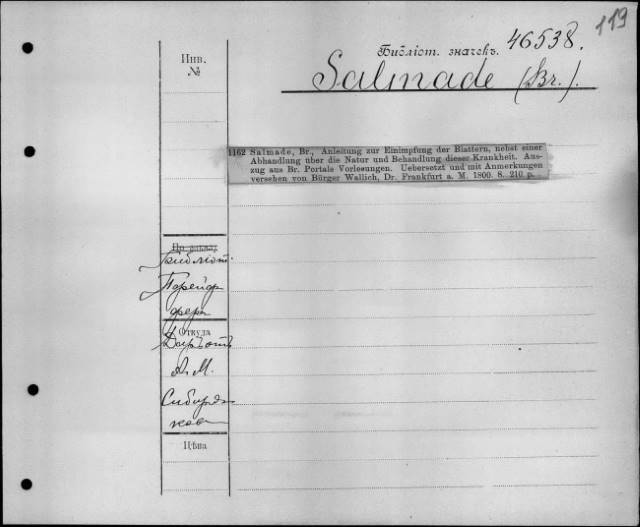 119
Библіот. значекъ. 46538.
Salmade (Br.).
Инв.
№
1162 Salmade, Br., Anleitung zur Einimpfung der Blattern, nebst einer
Abhandlung über die Natur und Behandlung dieser Krankheit. Aus-
zug aus Br. Portals Vorlesungen. Uebersetzt und mit Anmerkungen
versehen von Bürger Wallich, Dr. Frankfurt a. M. 1800. 8. 210 p.
Библіот.
Откуда
Даръ отъ
А. М.
Сибиря-
кова
Цѣна